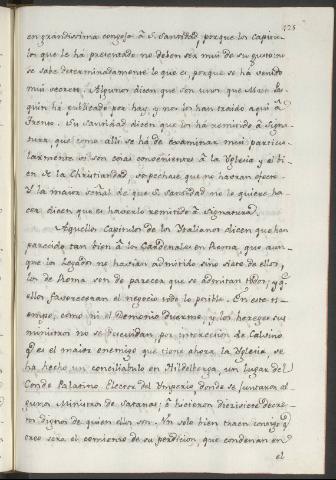 125
en grandissima congoja à S. Santidad, porque los Capitu-
los que le há presentado no deben ser mui de su gusto: no
se sabe determinadamente lo que es, porque se há venido
mui secreto. Algunos dicen que son unos que Musr. Las-
quin há publicado por hay, y nos los han traido aqui à
Trento. Su Santidad dicen que los há remitido à Signa-
tura, que como alli se há de examinar mui particu-
larmente si son cosas convenientes à la Yglesia y el bi-
en de la Christiandad, sospechase que no havran efecto.
Y la maior señal de que S. Santidad no lo quiere ha-
cer, dicen que es haverlo remitido à Signatura.
Aquellos Capitulos de los Ytalianos dicen que han
parecido tan bien à los Cardenales en Roma, que aun-
que los Legados no havian admitido sino siete de ellos,
los de Roma son de parecer que se admitan todos, y q.
ellos favoreceran el negocio todo lo posible. En este ti-
empo, como ni el Demonio duerme, y los hereges sus
ministros no se descuidan, por intercecion de Calvino
q. es el maior enemigo que tiene ahora la Yglesia, se
ha hecho un conciliabulo en Hildelberga, un lugar del
Conde Palatino, Elector del Ymperio, donde se juntaron al-
gunos Ministros de Satanas, è hicieron diezisiete decre-
tos dignos de quien ellos son. No solo bien traen consigo q.
creo será el comienzo de su perdicion, que condenan en
el